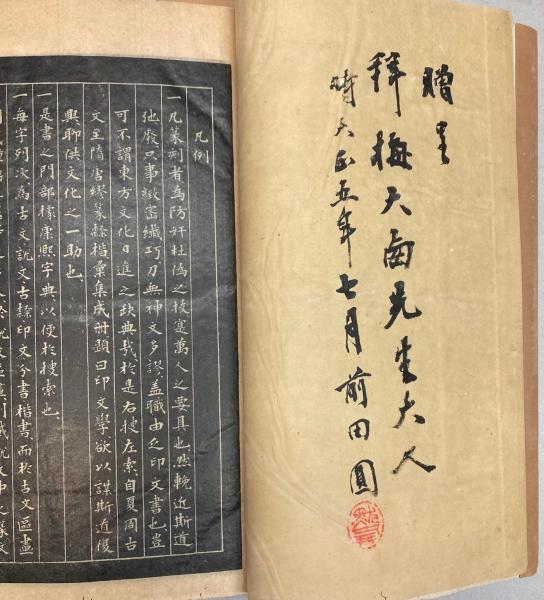 贈呈
拜梅大先生大人
時大正五年七月前田圓
凡例
一凡篆刻者為防奸杜偽之技寔萬人之要具也然輓近斯道
弛廢只事緻密纖巧刀無神文多謬蓋職由乏印文書也豈
可不謂東方文化日進之缺典哉於是右搜左索自夏周古
文至隋唐繆篆隸楷彙集成册題曰印文學欲以謀斯道復
興聊供文化之一助也
一是書之門部據康熙字典以便於搜索也
一每字列次為古文說文古隸印文分書楷書而於古文區畫